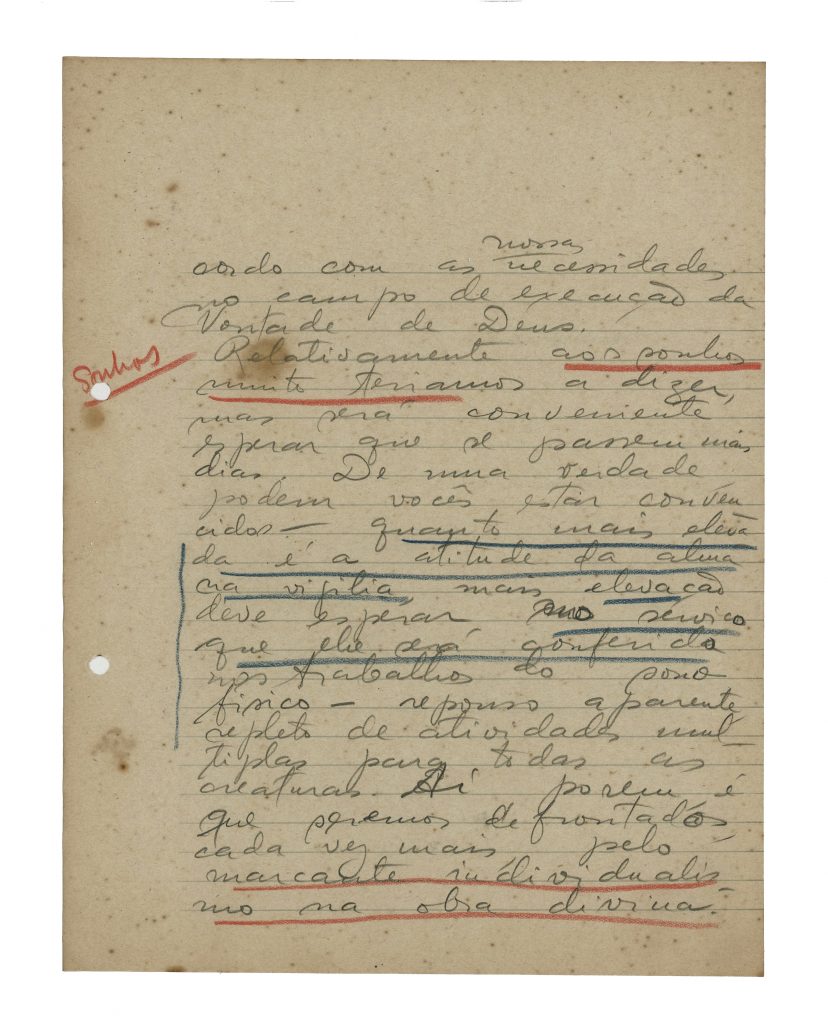 nossas
cordo com as necessidades
no campo de execução da
Vontade de Deus.
Relativamente aos sonhos
Sonhos
muito teriamos a dizer,
mas será conveniente
esperar que se passem mais
dias. De uma verdade
podem vocês estar conven
cidos — quanto mais eleva
da é a atitude da alma
na vigilia, mais elevação
deve esperar no serviço
que lhe será conferido
nos trabalhos do sono
fisico — repouso aparente,
repleto de atividades mul-
tiplas para todas as
creaturas. Aí porem é
que seremos defrontados
cada vez mais pelo
marcante individualis
mo na obra divina.